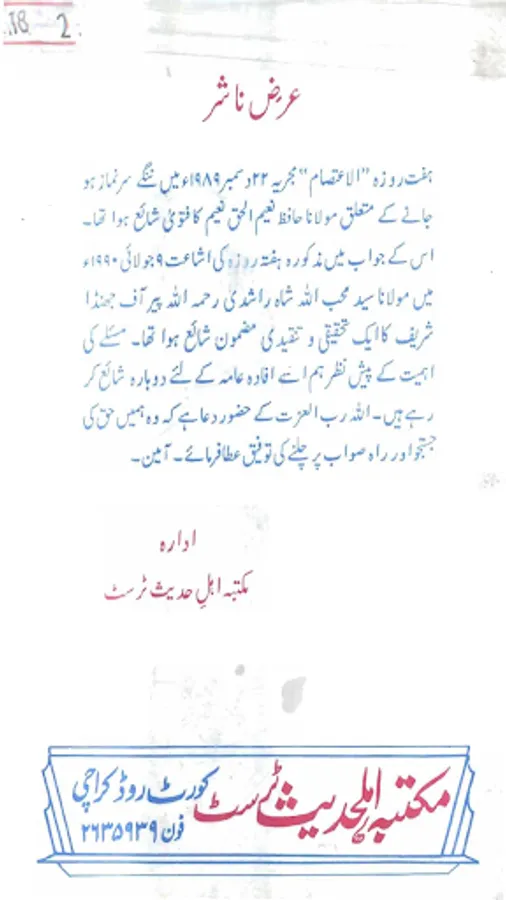 18 2
عرض ناشر
ہفت روزہ "الاعتصام" مجریہ ۲۲ دسمبر ۱۹۸۹ء میں ننگے سر نماز ہو
جانے کے متعلق مولانا حافظ نعیم الحق نعیم کا فتویٰ شائع ہوا تھا۔
اس کے جواب میں مذکورہ ہفتہ روزہ کی اشاعت ۹ جولائی ۱۹۹۰ء
میں مولانا سید محب اللہ شاہ راشدی رحمہ اللہ پیر آف جھنڈا
شریف کا ایک تحقیقی و تنقیدی مضمون شائع ہوا تھا۔ مسئلے کی
اہمیت کے پیش نظر ہم اسے افادہ عامہ کے لئے دوبارہ شائع کر
رہے ہیں۔ اللہ رب العزت کے حضور دعا ہے کہ وہ ہمیں حق کی
جستجو اور راہ صواب پر چلنے کی توفیق عطا فرمائے۔ آمین۔
ادارہ
مکتبہ اہلِ حدیث ٹرسٹ
مکتبہ اہلحدیث ٹرسٹ کورٹ روڈ کراچی
فون ۲۶۳۵۹۳۹